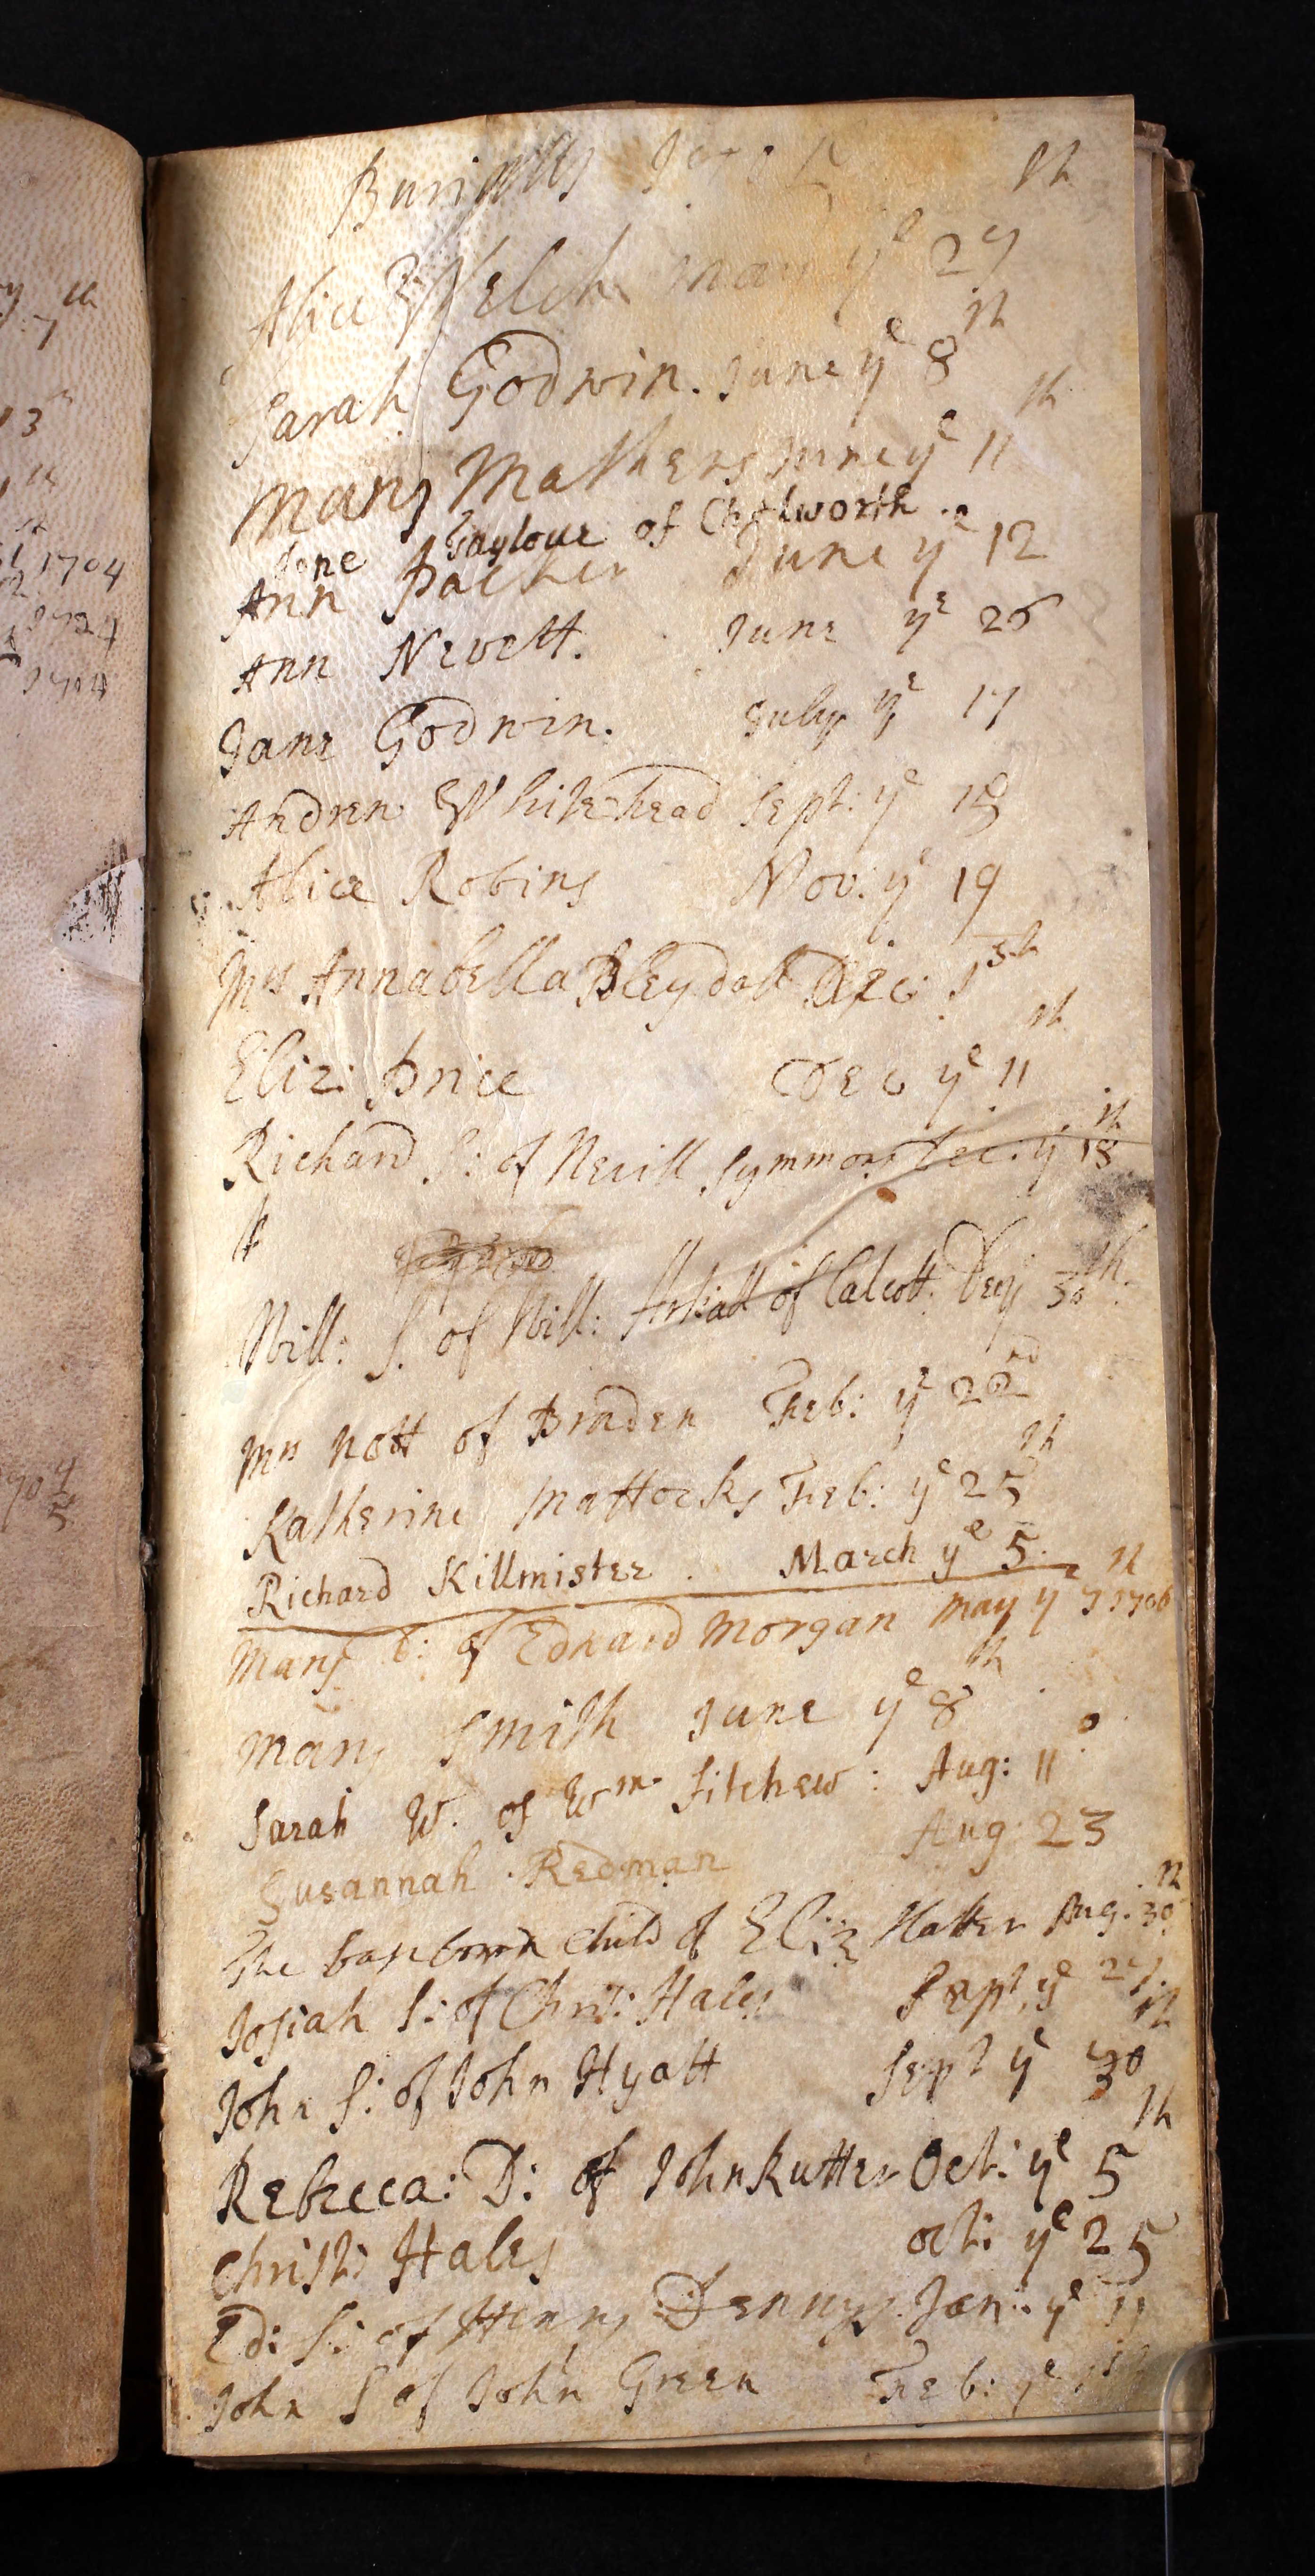 y th
7
13
th
1704
1704
1704
1704
5
Burialls 1705 th
Alice Welch may ye 27
Sarah Godwin. June ye 8th
Mary Mathers June ye 11th
Jone Taylour of Chelworth.
Ann Packer June ye 12
Ann Nevett. June ye 26
Jane Godwin. July ye 17
Andrew Whitehead Sept: ye 18
Alice Robins Nov: ye 19
Mrs Annabella Pleydall Dec: 5th
Eliz: Price Dec ye 11th
Richard S: of Nevill Symmons Dec: ye 18th
Will: S. of Will: of Calcott. Decy 30th.
Mrs Nott of Braden Feb: ye 22nd
Katherine Mattocks Feb: ye 25th
Richard Killmister. March ye 5.
Mary D: of Edward Morgan may y 7th 1706
Mary Smith June ye 8th
Sarah W. of Wm. Fitchew: Aug: 11o
Susannah Redman Aug: 23
The base born child of Eliz Hatter Aug. 30th
Josiah S: of Chris: Hales Sept ye 27
John S: of John Hyatt Sept ye 30th
Rebecca: D: of John Rutter Oct: ye 5th
Christ: Hales oct: ye 25
Ed: S: of Henry Dennys. Jan: ye 11
John S of John Green Feb: ye